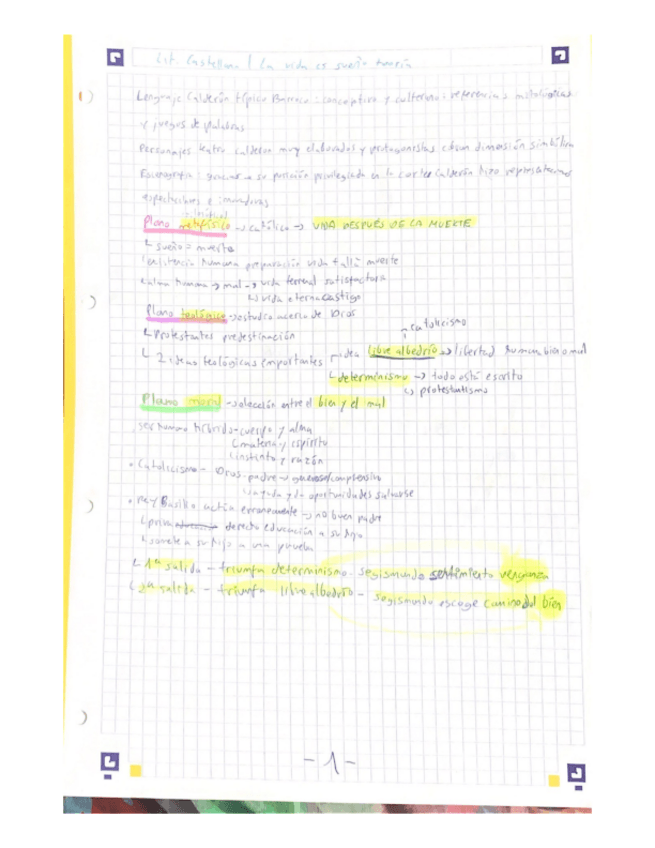 Lit. Castellana | La vida es sueño teoría
Lenguaje Calderón típico Barroco: conceptivo y culterano: referencias mitológicas
y juegos de palabras
Personajes teatro calderon muy elaborados y protagonistas cobran dimensión simbólica
Escenografía: gracias a su posición privilegiada en la corte Calderón hizo representaciones
espectaculares e innovadoras
Plano metafísico → católico → VIDA DESPUÉS DE LA MUERTE
↳ sueño = muerte
existencia humana preparación vida + allá muerte
↳ alma humana → mal → vida terrenal satisfactoria
↳ vida eterna castigo
Plano teológico → estudio acerca de Dios
↳ Protestantes predestinación
↳ catolicismo
↳ 2 ideas teológicas importantes idea libre albedrío → libertad humana bien o mal
↳ determinismo → todo está escrito
↳ protestantismo
Plano moral → selección entre el bien y el mal
ser humano híbrido - cuerpo y alma
↳ materia y espíritu
↳ instinto y razón
• Catolicismo - Dios padre → generoso/comprensivo
↳ ayuda y da oportunidades salvarse
• Rey Basilio actúa erroneamente → no buen padre
↳ priva derecho educación a su hijo
↳ somete a su hijo a una prueba
↳ 1ª salida - triunfa determinismo - segismundo sentimiento venganza
↳ 2ª salida - triunfa libre albedrío - segismundo escoge camino del bien
- 1 -